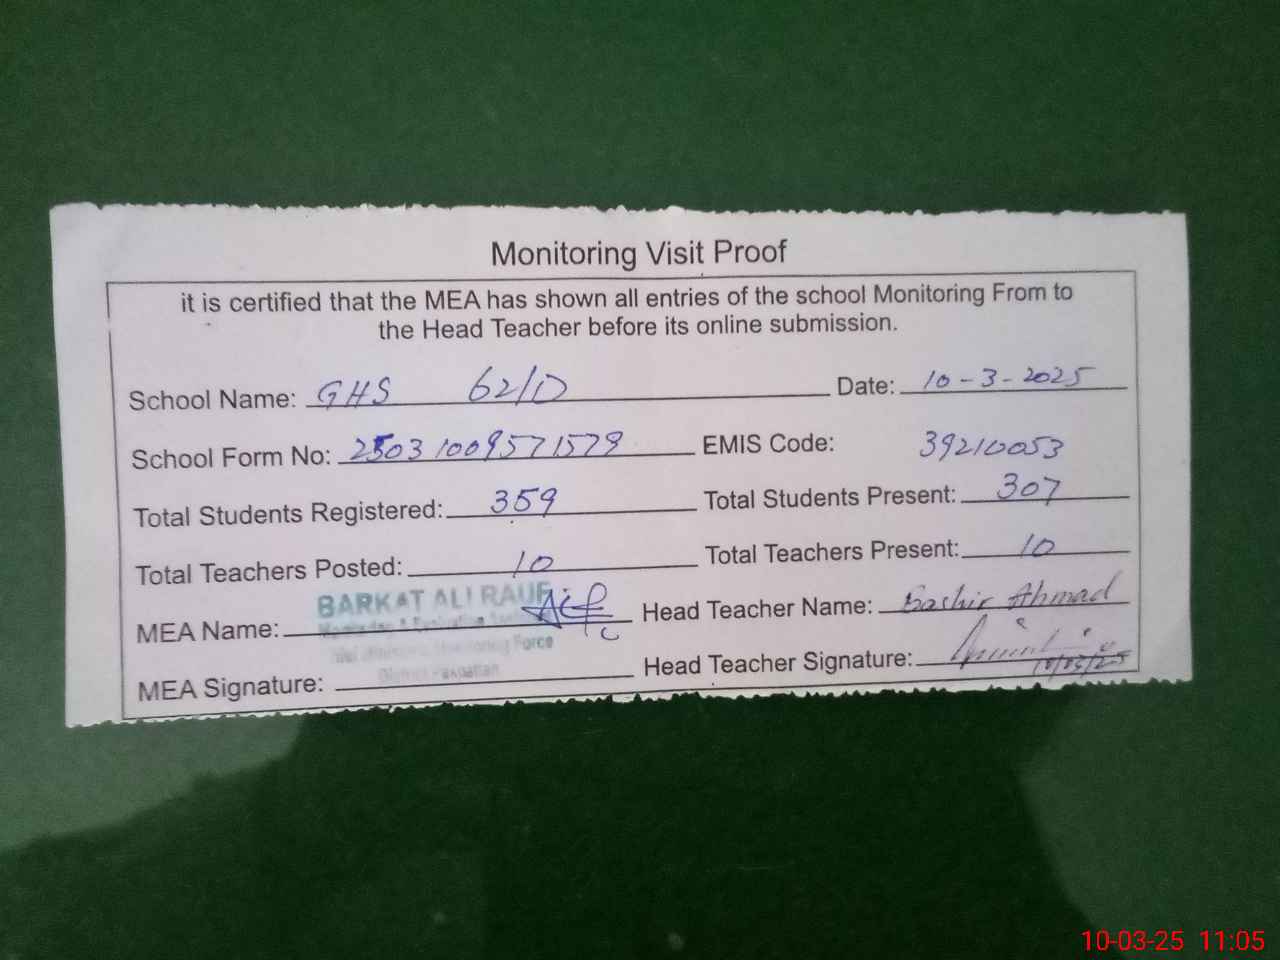 Monitoring Visit Proof
it is certified that the MEA has shown all entries of the school Monitoring From to
the Head Teacher before its online submission.
School Name: GHS 62/D Date: 10-3-2025
School Form No: 25031009571579 EMIS Code: 39210053
Total Students Registered: 359 Total Students Present: 307
Total Teachers Posted: 10 Total Teachers Present: 10
BARKAT ALI RAUF
MEA Name: Head Teacher Name: Bashir Ahmad
Monitoring Force
MEA Signature: Head Teacher Signature: 10/03/25
10-03-25 11:05